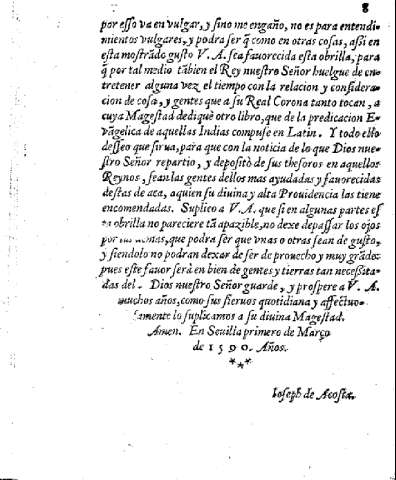 8
por esso va en vulgar, y sino me engaño, no es para entendi-
mientos vulgares, y podra ser q̃ como en otras cosas, assi en
esta mostrãdo gusto V. A. sea fauorecida esta obrilla, para
q̃ por tal medio tãbien el Rey nuestro Señor huelgue de en-
tretener alguna vez el tiempo con la relacion y considera-
cion de cosa, y gentes que a su Real Corona tanto tocan, a
cuya Magestad dediquè otro libro, que de la predicacion E-
vãgelica de aquellas Indias compuse en Latin. Y todo ello
desseo que sirua, para que con la noticia de lo que Dios nue-
stro Señor repartio, y depositò de sus thesoros en aquellos
Reynos, sean las gentes dellos mas ayudadas y fauorecidas
destas de aca, a quien su diuina y alta Prouidencia las tiene
encomendadas. Suplico a V. A. que si en algunas partes es
ta obrilla no pareciere tã apazible, no dexe de passar los ojos
por las demas, que podra ser que vnas o otras sean de gusto,
y siendolo no podran dexar de ser de prouecho y muy grãde:
pues este fauor serà en bien de gentes y tierras tan necessita-
das del. Dios nuestro Señor guarde, y prospere a V. A.
muchos años, como sus sieruos quotidiana y affectuo-
samente lo suplicamos a su diuina Magestad.
Amen. En Seuilla primero de Março
de 1590. Años.
***
Ioseph de Acosta.